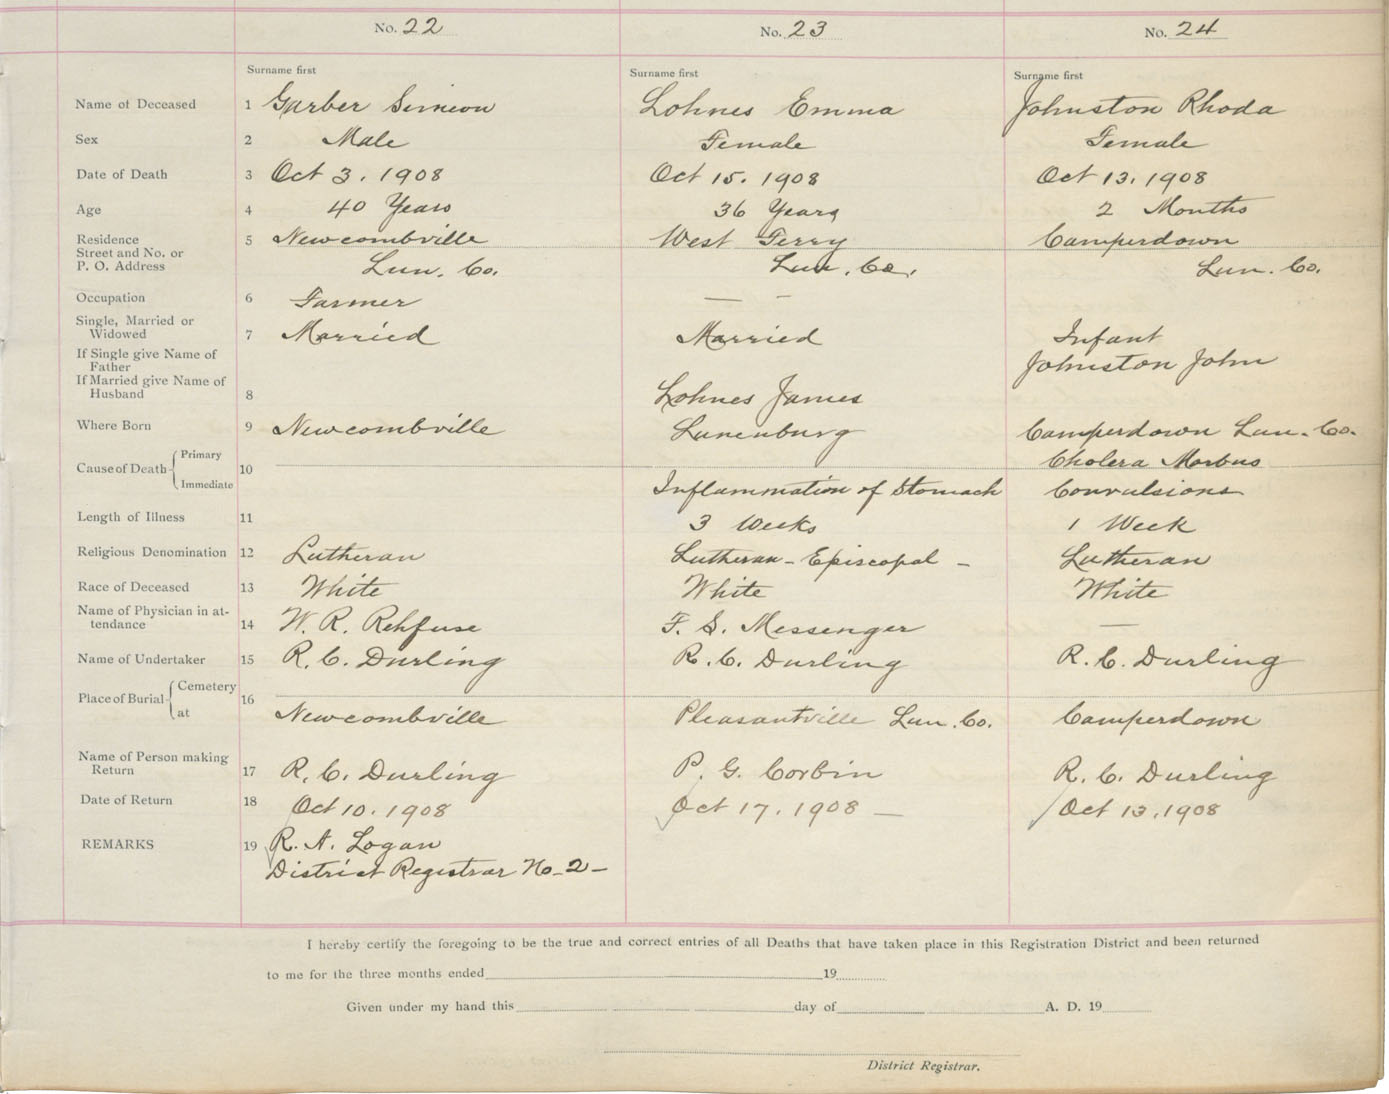 No. 22 No. 23 No. 24
Surname first Surname first Surname first
Name of Deceased 1 Garber Simeon Lohnes Emma Johnston Rhoda
Sex 2 Male Female Female
Date of Death 3 Oct 3. 1908 Oct 15. 1908 Oct 13. 1908
Age 4 40 Years 36 Years 2 Months
Residence 5 Newcombville West Ferry Camperdown
Street and No. or
P. O. Address Lun. Co. Lun. Co. Lun. Co.
Occupation 6 Farmer — -
Single, Married or
Widowed 7 Married Married Infant
If Single give Name of
Father Johnston John
If Married give Name of
Husband 8 Lohnes James
Where Born 9 Newcombville Lunenburg Camperdown Lun. Co.
Cause of Death Primary 10 Cholera Morbus
Immediate Inflammation of Stomach Convulsions
Length of Illness 11 3 Weeks 1 Week
Religious Denomination 12 Lutheran Lutheran - Episcopal - Lutheran
Race of Deceased 13 White White White
Name of Physician in at-
tendance 14 W. R. Rehfuse F. S. Messenger —
Name of Undertaker 15 R. C. Durling R. C. Durling R. C. Durling
Place of Burial Cemetery 16
at Newcombville Pleasantville Lun. Co. Camperdown
Name of Person making
Return 17 R. C. Durling P. G. Corbin R. C. Durling
Date of Return 18 Oct 10. 1908 Oct 17. 1908 — Oct 13. 1908
REMARKS 19 R. A. Logan
District Registrar No - 2 -
I hereby certify the foregoing to be the true and correct entries of all Deaths that have taken place in this Registration District and been returned
to me for the three months ended 19
Given under my hand this day of A. D. 19
District Registrar.